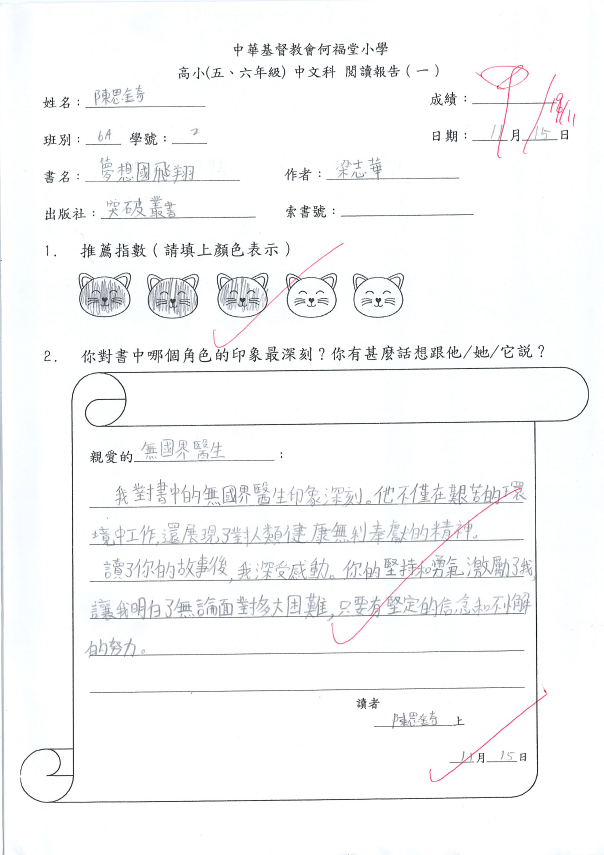 中華基督教會何福堂小學
高小(五、六年級) 中文科 閱讀報告（一）
姓名：陳思錡 成績：
班別：6A 學號：2 日期：11月15日
書名：夢想國飛翔 作者：梁志華
出版社：突破叢書 索書號：
1. 推薦指數（請填上顏色表示）
2. 你對書中哪個角色的印象最深刻？你有甚麼話想跟他/她/它說？
親愛的無國界醫生：
我對書中的無國界醫生印象深刻。他不僅在艱苦的環
境中工作，還展現了對人類健康無利奉獻的精神。
讀了你的故事後，我深受感動。你的堅持和勇氣激勵了我，
讓我明白了無論面對多大困難，只要有堅定的信念和不懈
的努力。
讀者
陳思錡 上
11月15日